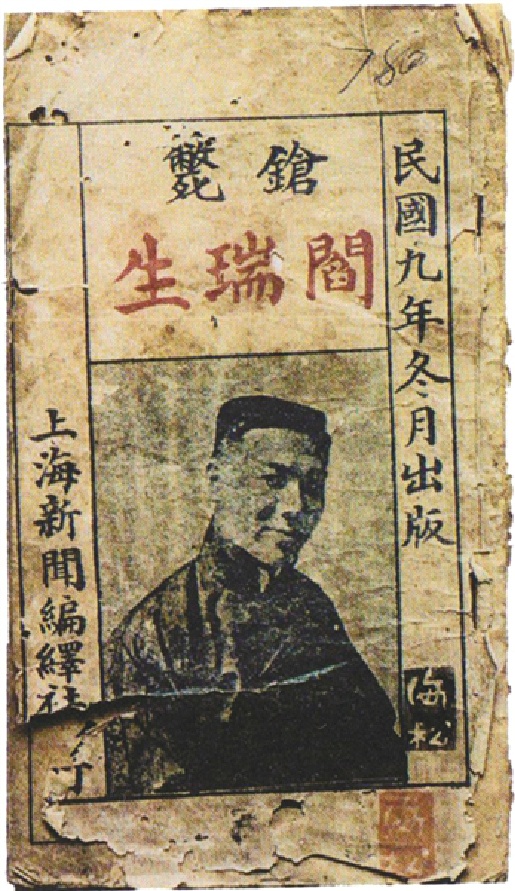 780
民國九年冬月出版
鎗斃
閻瑞生
上海新聞編繹社